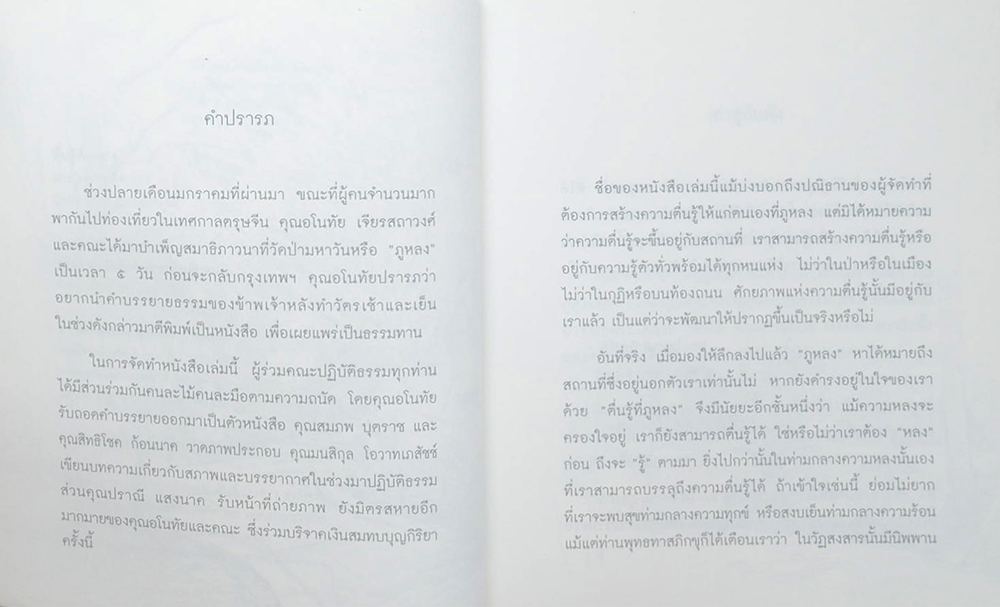 คำปรารภ
ช่วงปลายเดือนมกราคมที่ผ่านมา ขณะที่ผู้คนจำนวนมาก
พากันไปท่องเที่ยวในเทศกาลตรุษจีน คุณอโนทัย เจียรสถาวงศ์
และคณะได้มาบำเพ็ญสมาธิภาวนาที่วัดป่ามหาวันหรือ "ภูหลง"
เป็นเวลา ๕ วัน ก่อนจะกลับกรุงเทพฯ คุณอโนทัยปรารภว่า
อยากนำคำบรรยายธรรมของข้าพเจ้าหลังทำวัตรเช้าและเย็น
ในช่วงดังกล่าวมาตีพิมพ์เป็นหนังสือ เพื่อเผยแพร่เป็นธรรมทาน
ในการจัดทำหนังสือเล่มนี้ ผู้ร่วมคณะปฏิบัติธรรมทุกท่าน
ได้มีส่วนร่วมกันคนละไม้คนละมือตามความถนัด โดยคุณอโนทัย
รับถอดคำบรรยายออกมาเป็นตัวหนังสือ คุณสมภพ บุตราช และ
คุณสิทธิโชค ก้อนนาค วาดภาพประกอบ คุณมนสิกุล โอวาทเภสัชช์
เขียนบทความเกี่ยวกับสภาพและบรรยากาศในช่วงมาปฏิบัติธรรม
ส่วนคุณปราณี แสงนาค รับหน้าที่ถ่ายภาพ ยังมิตรสหายอีก
มากมายของคุณอโนทัยและคณะ ซึ่งร่วมบริจาคเงินสมทบบุญกิริยา
ครั้งนี้
ชื่อของหนังสือเล่มนี้แม้บ่งบอกถึงปณิธานของผู้จัดทำที่
ต้องการสร้างความตื่นรู้ให้แก่ตนเองที่ภูหลง แต่มิได้หมายความ
ว่าความตื่นรู้จะขึ้นอยู่กับสถานที่ เราสามารถสร้างความตื่นรู้หรือ
อยู่กับความรู้ตัวทั่วพร้อมได้ทุกหนแห่ง ไม่ว่าในป่าหรือในเมือง
ไม่ว่าในกุฏิหรือบนท้องถนน ศักยภาพแห่งความตื่นรู้นั้นมีอยู่กับ
เราแล้ว เป็นแต่ว่าจะพัฒนาให้ปรากฏขึ้นเป็นจริงหรือไม่
อันที่จริง เมื่อมองให้ลึกลงไปแล้ว "ภูหลง" หาได้หมายถึง
สถานที่ซึ่งอยู่นอกตัวเราเท่านั้นไม่ หากยังดำรงอยู่ในใจของเรา
ด้วย "ตื่นรู้ที่ภูหลง" จึงมีนัยยะอีกชั้นหนึ่งว่า แม้ความหลงจะ
ครองใจอยู่ เราก็ยังสามารถตื่นรู้ได้ ใช่หรือไม่ว่าเราต้อง "หลง"
ก่อน ถึงจะ "รู้" ตามมา ยิ่งไปกว่านั้นในท่ามกลางความหลงนั้นเอง
ที่เราสามารถบรรลุถึงความตื่นรู้ได้ ถ้าเข้าใจเช่นนี้ ย่อมไม่ยาก
ที่เราจะพบสุขท่ามกลางความทุกข์ หรือสงบเย็นท่ามกลางความร้อน
แม้แต่ท่านพุทธทาสภิกขุก็ได้เตือนเราว่า ในวัฏสงสารนั้นมีนิพพาน